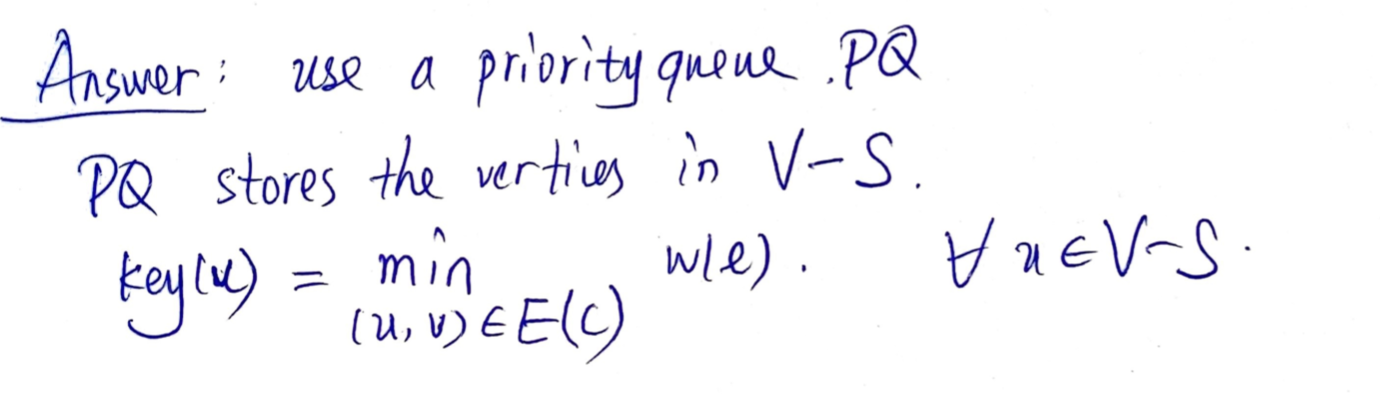 Answer: use a priority queue. PQ
PQ stores the vertices in V-S.
key(u) = min w(e). ∀ u ∈ V-S.
(u, v) ∈ E(C)